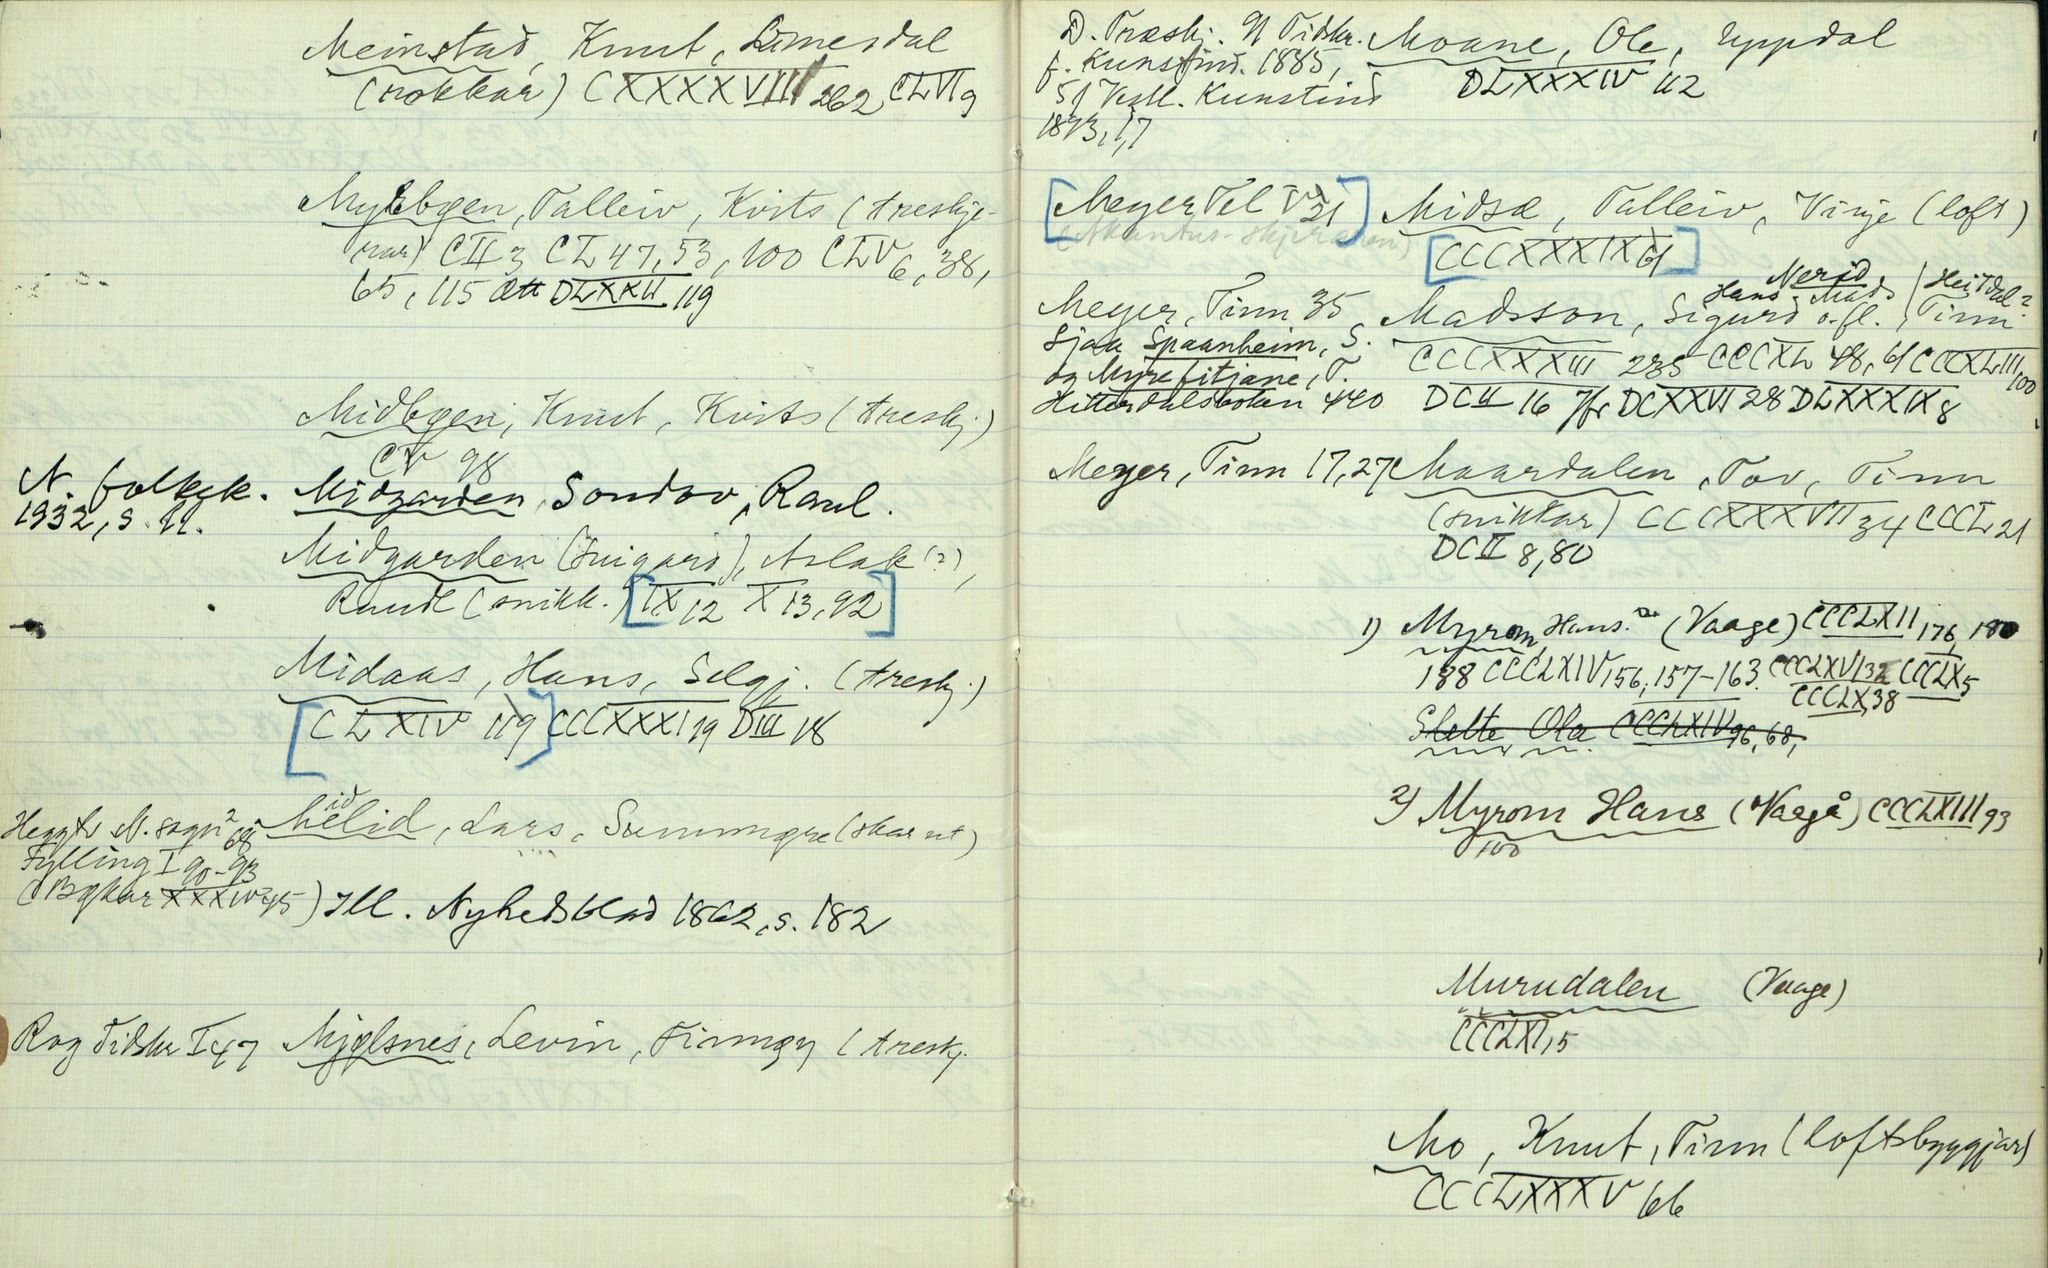 Meinstad, Knut, Lunesdal
(rokkar) CXXXXVIII 262 CLVI 9
Myrbøen, Talleiv, Kvits (treskje-
rar) CII 3 CL 47, 53, 100 CLV 6, 38,
65, 115 Ætt DLXXII 119
Midbøen, Knut, Kvits (treskj.)
CV 98
N. folkek.
1932, s. 11.
Midgarden, Sondov, Raul.
Midgarden (Suigard), Aslak (?),
Raudl (snikk.) [IX 12 X 13, 92]
Midaas, Hans, Selgj. (treskj.)
[CLXIV 119] CCCXXXI 19 DIII 18
Heggtv. N. sogn 2 68
Fylling I 90-93
(Bøkar XXXIV 45)
Midlid, Lars, Sunnmøre (skar ut)
Ill. Nyhedsblad 1862, s. 182
Rog Tidskr I 47
Mjølsnes, Levin, Finnøy (treskj.
D. Træskj. N Tidskr.
f. Kunstind. 1885,
51 Vestl. Kunstind
1893, 17
Moane, Ole, Uppdal
DLXXXIV 112
[Meyer Tel V 21]
(Akantus-skjeraren)
Midsæ, Talleiv, Vinje (loft)
[CCCXXXIX 61]
Meyer, Tinn 35
Sjaa Spaanheim, S.
og Myrefitjane, T.
Hitterdalsboken 440
Nerid
Hans Mads / Heitdal?
Madsson, Sigurd o.fl., Tinn
CCCXXXIII 285 CCCXL 48, 61 CCCXLIII 100
DCII 16 Jfr DCXXVI 28 DLXXXIX 8
Meyer, Tinn 17, 27
Maardalen, Tov, Tinn
(snikkar) CCCXXXVII 34 CCCL 21
DCII 8, 80
1) Myrom, Hans. (Vaage) CCCLXII 176, 180
188 CCCLXIV 156, 157-163. CCCLXVI 32 CCCLX 5
CCCLX, 38
Slette Ola CCCLXIV 96, 68,
2) Myrom Hans (Vaagå) CCCLXIII 93
100
Murudalen (Vaage)
CCCLXI, 5
Mo, Knut, Tinn (loftsbyggjar)
CCCLXXXV 66